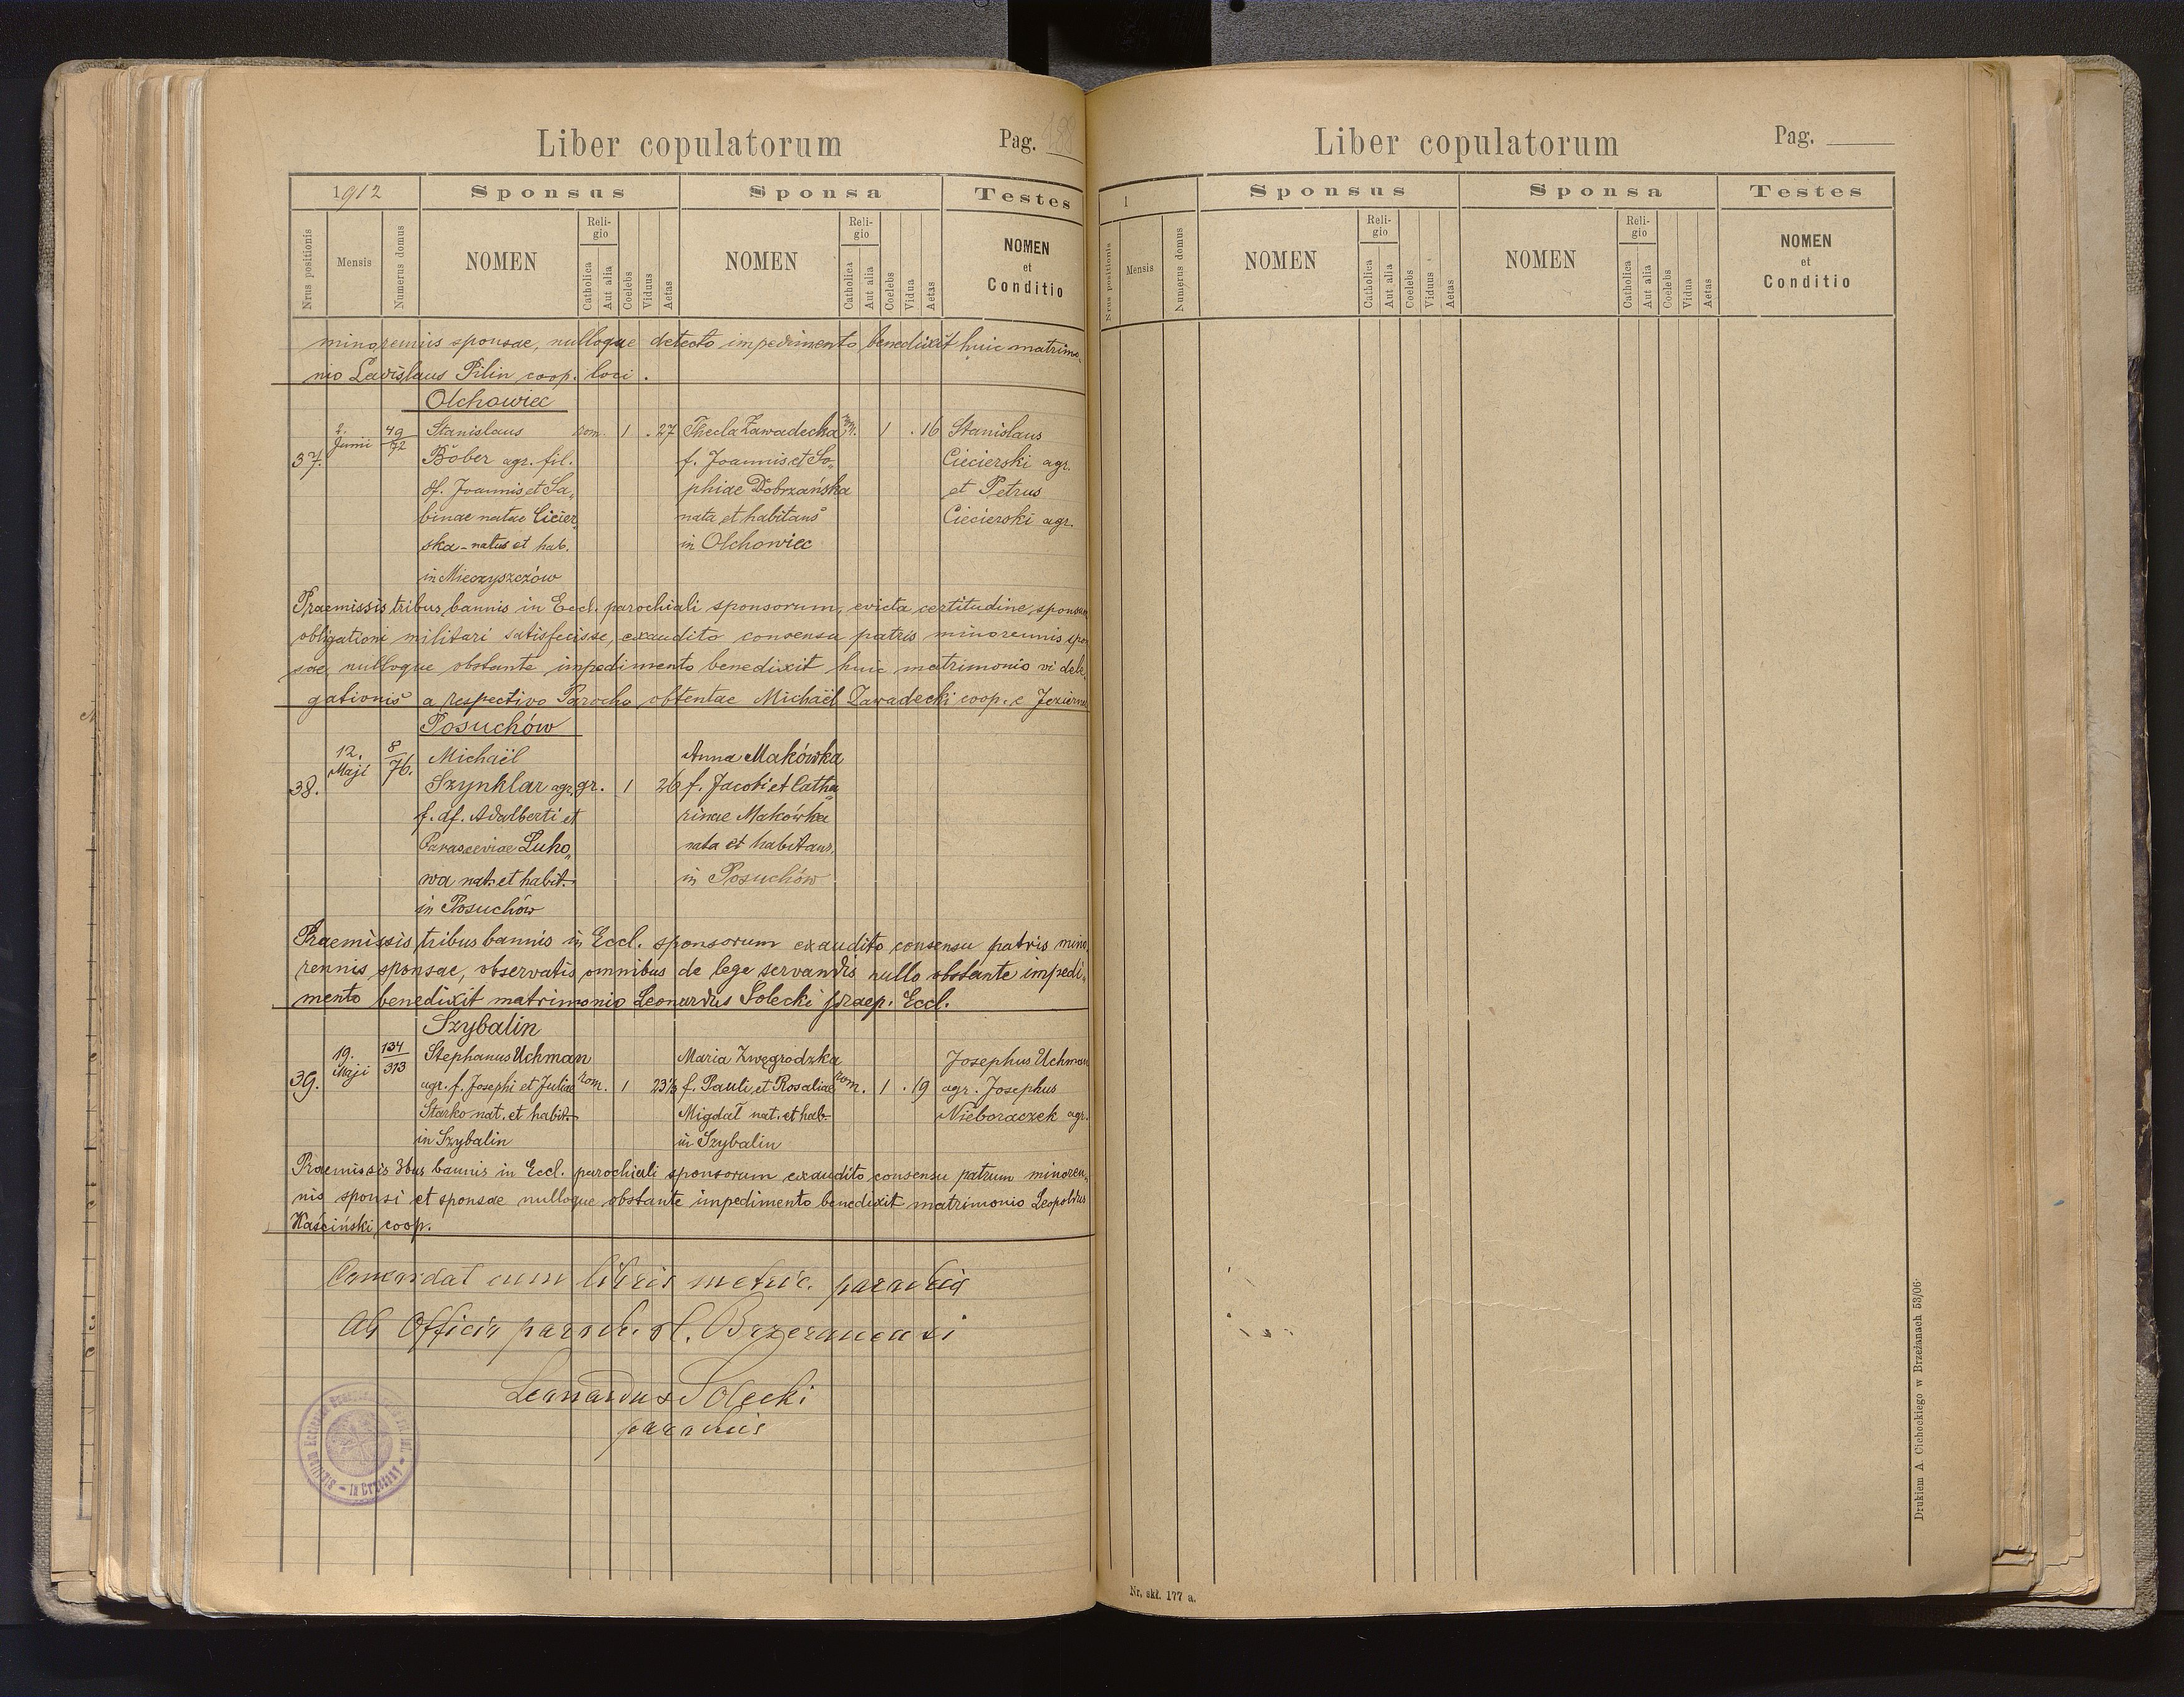 Liber copulatorum Pag. 188
1912 Sponsus Sponsa Testes
Nrus positionis Mensis Numerus domus NOMEN Religio Catholica Aut alia Coelebs Viduus Aetas NOMEN Religio Catholica Aut alia Coelebs Vidua Aetas NOMEN et Conditio
minorennis sponsae, nulloque detecto impedimento benedixit huic matrimo„
nio Ladislaus Pilin coop. loci.
Olchowiec
2. 49 Stanislaus rom. 1 . 27 Thecla Zawadecka 1 . 16 Stanislaus
Junii 72
37. Bober agr. fil. f. Joannis et So„ Ciecierski agr.
df. Joannis et Sa„ phiae Dobrzańska et Petrus
binae natae Cicier„ nata et habitans Ciecierski agr.
ska - natus et hab. in Olchowiec
in Mieczyszczów
Praemissis tribus bannis in Eccl. parochiali sponsorum, evicta certitudine, sponsum
obligationi militari satisfecisse, exaudito consensu patris minorennis spon
sae, nulloque obstante impedimento benedixit huic matrimonio vi dele„
gationis a respectivo Parocho obtentae Michaël Zawadecki coop. e Jezierna
Posuchów
12. 8 Michaël Anna Makówka
Maji 76.
38. Szynklar agr. gr. 1 26 f. Jacobi et Catha„
f. df. Adalberti et rinae Makówka
Parasceviae Luho„ nata et habitans,
wa nat. et habit. in Posuchów
in Posuchów
Praemissis tribus bannis in Eccl. sponsorum exaudito consensu patris mino„
rennis sponsae, observatis omnibus de lege servandis nullo obstante impedi„
mento benedixit matrimonio Leonardus Solecki praep. Eccl.
Szybalin
19. 134 Stephanus Uchman Maria Zwęgrodzka Josephus Uchman
Maji 313
39. agr. f. Josephi et Juliae rom. 1 23½ f. Pauli et Rosaliae rom. 1 . 19 agr. Josephus
Starko nat. et habit. Migdał nat. et hab. Nieboraczek agr.
in Szybalin in Szybalin
Praemissis 3bus bannis in Eccl. parochiali sponsorum exaudito consensu patrum minoren„
nis sponsi et sponsae nulloque obstante impedimento benedixit matrimonio Leopoldus
Kaściński coop.
Concordat cum libris metric. parochia
Ab Officio paroch. r. l. Brzezanensi
Leonardus Solecki
parochus
Liber copulatorum Pag.
1 Sponsus Sponsa Testes
Nrus positionis Mensis Numerus domus NOMEN Religio Catholica Aut alia Coelebs Viduus Aetas NOMEN Religio Catholica Aut alia Coelebs Vidua Aetas NOMEN et Conditio
Drukiem A. Cichockiego w Brzeżanach 53/06.
Nr. skł. 177 a.